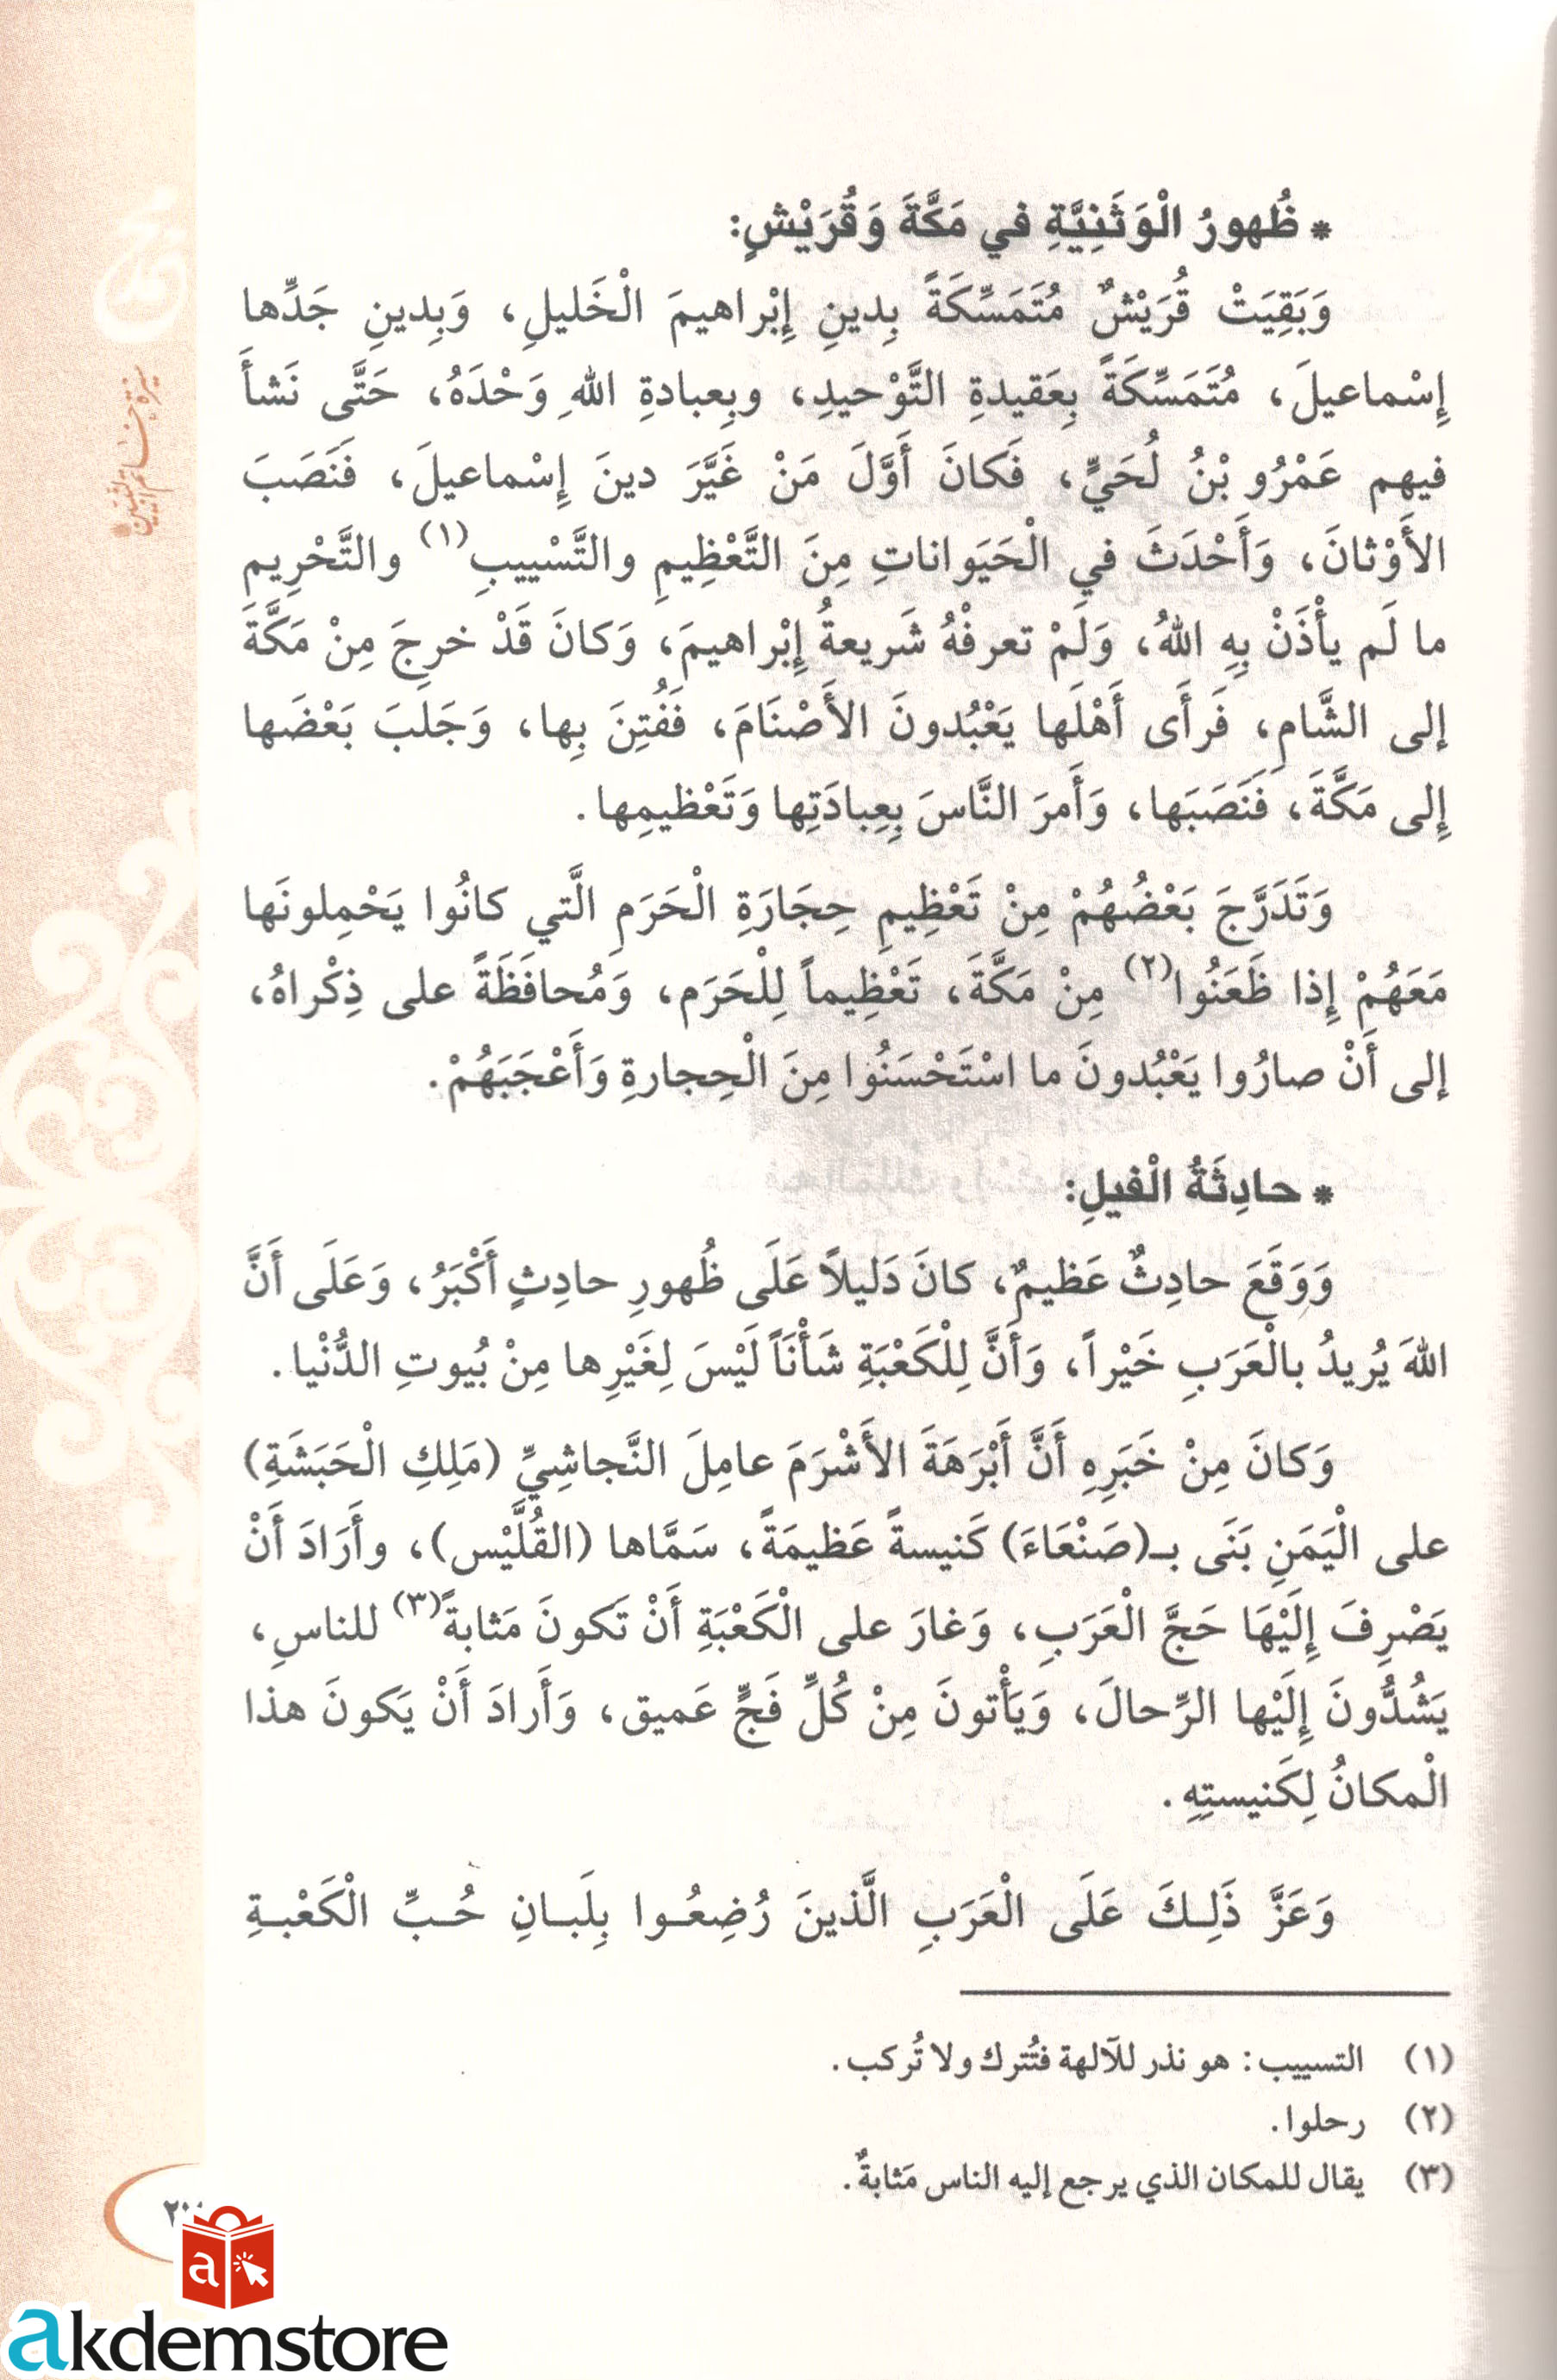 * ظُهورُ الْوَثَنِيَّةِ في مَكَّةَ وَقُرَيْشٍ:
وَبَقِيَتْ قُرَيْشٌ مُتَمَسِّكَةً بِدينِ إِبْراهيمَ الْخَليلِ، وَبِدينِ جَدِّها
إِسْماعيلَ، مُتَمَسِّكَةً بِعَقيدةِ التَّوْحيدِ، وبِعبادةِ اللهِ وَحْدَهُ، حَتَّى نَشأَ
فيهم عَمْرُو بْنُ لُحَيٍّ، فَكانَ أَوَّلَ مَنْ غَيَّرَ دينَ إِسْماعيلَ، فَنَصَبَ
الأَوْثانَ، وَأَحْدَثَ في الْحَيَواناتِ مِنَ التَّعْظِيمِ والتَّسْييبِ(١) والتَّحْرِيم
ما لَم يأْذَنْ بِهِ اللهُ، وَلَمْ تعرفْهُ شَريعةُ إِبْراهيمَ، وَكانَ قَدْ خرجَ مِنْ مَكَّةَ
إلى الشَّامِ، فَرأَى أَهْلَها يَعْبُدونَ الأَصْنَامَ، فَفُتِنَ بِها، وَجَلَبَ بَعْضَها
إِلى مَكَّةَ، فَنَصَبَها، وَأَمرَ النَّاسَ بِعِبادَتِها وَتَعْظيمِها.
وَتَدَرَّجَ بَعْضُهُمْ مِنْ تَعْظِيمِ حِجَارَةِ الْحَرَمِ الَّتي كانُوا يَحْمِلونَها
مَعَهُمْ إِذا ظَعَنُوا(٢) مِنْ مَكَّةَ، تَعْظِيماً لِلْحَرَم، وَمُحافَظَةً على ذِكْراهُ،
إلى أَنْ صارُوا يَعْبُدونَ ما اسْتَحْسَنُوا مِنَ الْحِجارةِ وَأَعْجَبَهُمْ.
* حادِثَةُ الْفيلِ:
وَوَقَعَ حادِثٌ عَظيمٌ، كانَ دَليلاً عَلَى ظُهورِ حادِثٍ أَكْبَرُ، وَعَلَى أَنَّ
اللهَ يُريدُ بالْعَرَبِ خَيْراً، وَأَنَّ لِلْكَعْبَةِ شَأْنَاً لَيْسَ لِغَيْرِها مِنْ بُيوتِ الدُّنْيا.
وَكانَ مِنْ خَبَرِهِ أَنَّ أَبْرَهَةَ الأَشْرَمَ عامِلَ النَّجاشِيِّ (مَلِكِ الْحَبَشَةِ)
على الْيَمَنِ بَنَى بـ(صَنْعَاءَ) كَنيسةً عَظيمَةً، سَمَّاها (القُلَّيْس)، وأَرَادَ أَنْ
يَصْرِفَ إِلَيْهَا حَجَّ الْعَرَبِ، وَغارَ على الْكَعْبَةِ أَنْ تَكونَ مَثابةً(٣) للناسِ،
يَشُدُّونَ إِلَيْها الرِّحالَ، وَيَأْتونَ مِنْ كُلِّ فَجٍّ عَميق، وَأَرادَ أَنْ يَكونَ هذا
الْمكانُ لِكَنيستِهِ.
وَعَزَّ ذَلِـكَ عَلَى الْعَرَبِ الَّذينَ رُضِعُـوا بِلَبـانِ حُـبِّ الْكَعْبـةِ
(١) التسييب: هو نذر للآلهة فتُترك ولا تُركب.
(٢) رحلوا.
(٣) يقال للمكان الذي يرجع إليه الناس مَثابةٌ.
سيرة خاتم النبيين
akdemstore